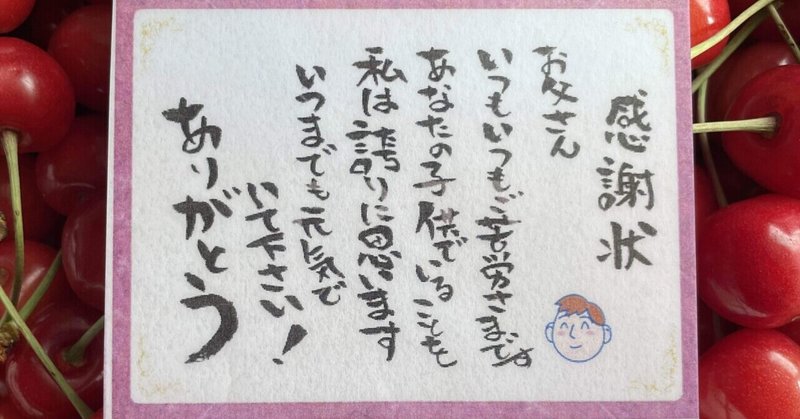 感謝状
お父さん
いつもいつもご苦労さまです
あなたの子供でいることを
私は誇りに思います
いつまでも元気で
いて下さい！
ありがとう